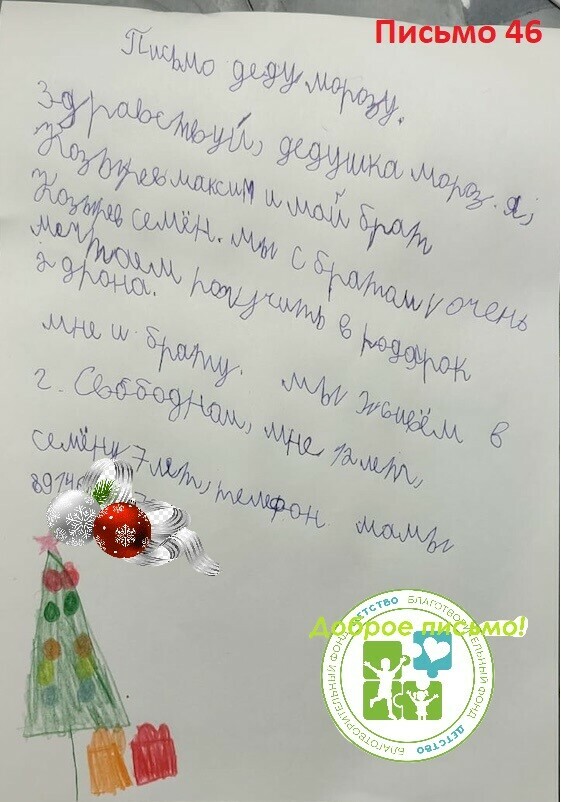 Письмо 46
Письмо деду морозу.
Здравствуй, дедушка мороз. Я,
Козырев максим и мой брат
Козырев семён. мы с братом очень
мечтаем получить в подарок
2 дрона.
мне и брату. мы живём в
г. Свободном, мне 12 лет,
семёну 7 лет, телефон мамы
8914
Доброе письмо!
БЛАГОТВОРИТЕЛЬНЫЙ ФОНД ДЕТСТВО
БЛАГОТВОРИТЕЛЬНЫЙ ФОНД ДЕТСТВО